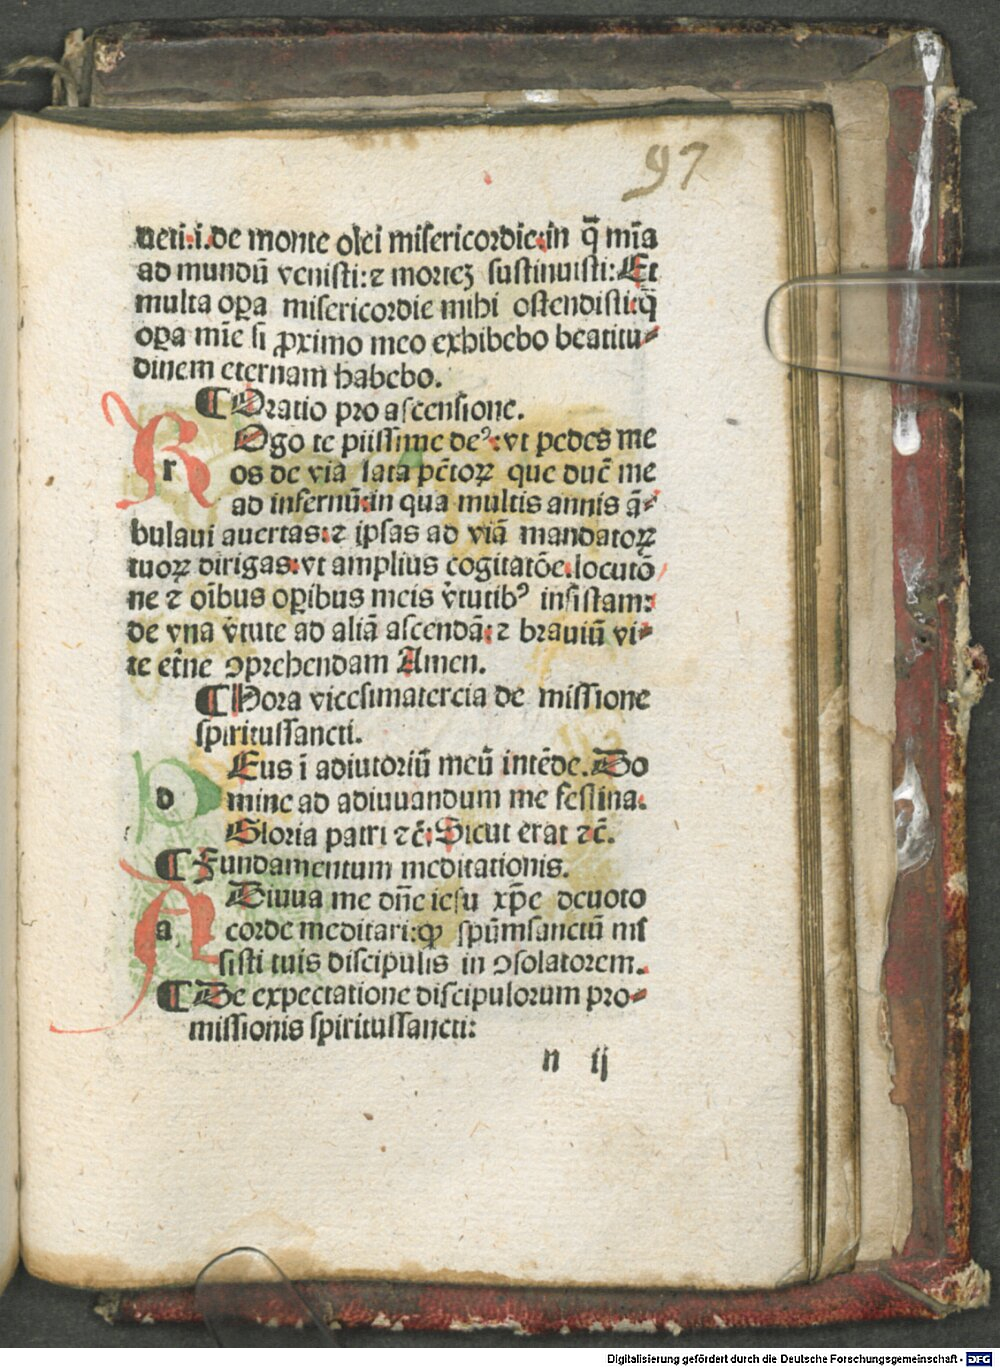 97
ueti.i.de monte olei misericordie:in q̃ mĩa
ad mundũ venisti:⁊ morteꝫ sustinuisti:Et
multa oꝑa misericordie mihi ostendisti:q̃
oꝑa mĩe si ꝓximo meo exhibebo beatitu⸗
dinem eternam habebo.
¶Oratio pro ascensione.
r Ogo te piissime deꝰ:vt pedes me
os de via lata pc̃toꝝ que duc̃ me
ad infernũ:in qua multis annis ã⸗
bulaui auertas:⁊ ipsas ad viã mandatoꝝ
tuoꝝ dirigas:vt amplius cogitatõe.locutõ
ne ⁊ oĩbus oꝑibus meis v̇tutibꝰ insistam:
de vna v̇tute ad aliã ascendã:⁊ brauiũ vi⸗
te et̃ne ꝯprehendam Amen.
¶Hora vicesimatercia de missione
spiritussancti.
d Eus ĩ adiutoriũ meũ intẽde.Do
mine ad adiuuandum me festina.
Gloria patri ⁊c̃:Sicut erat ⁊c̃.
¶Fundamentum meditationis.
a Diuua me dñe iesu xp̃e deuoto
corde meditari:ꝙ spũmsanctũ mi
sisti tuis discipulis in ꝯsolatorem.
¶De expectatione discipulorum pro⸗
missionis spiritussancti:
n ij
Digitalisierung gefördert durch die Deutsche Forschungsgemeinschaft - DFG